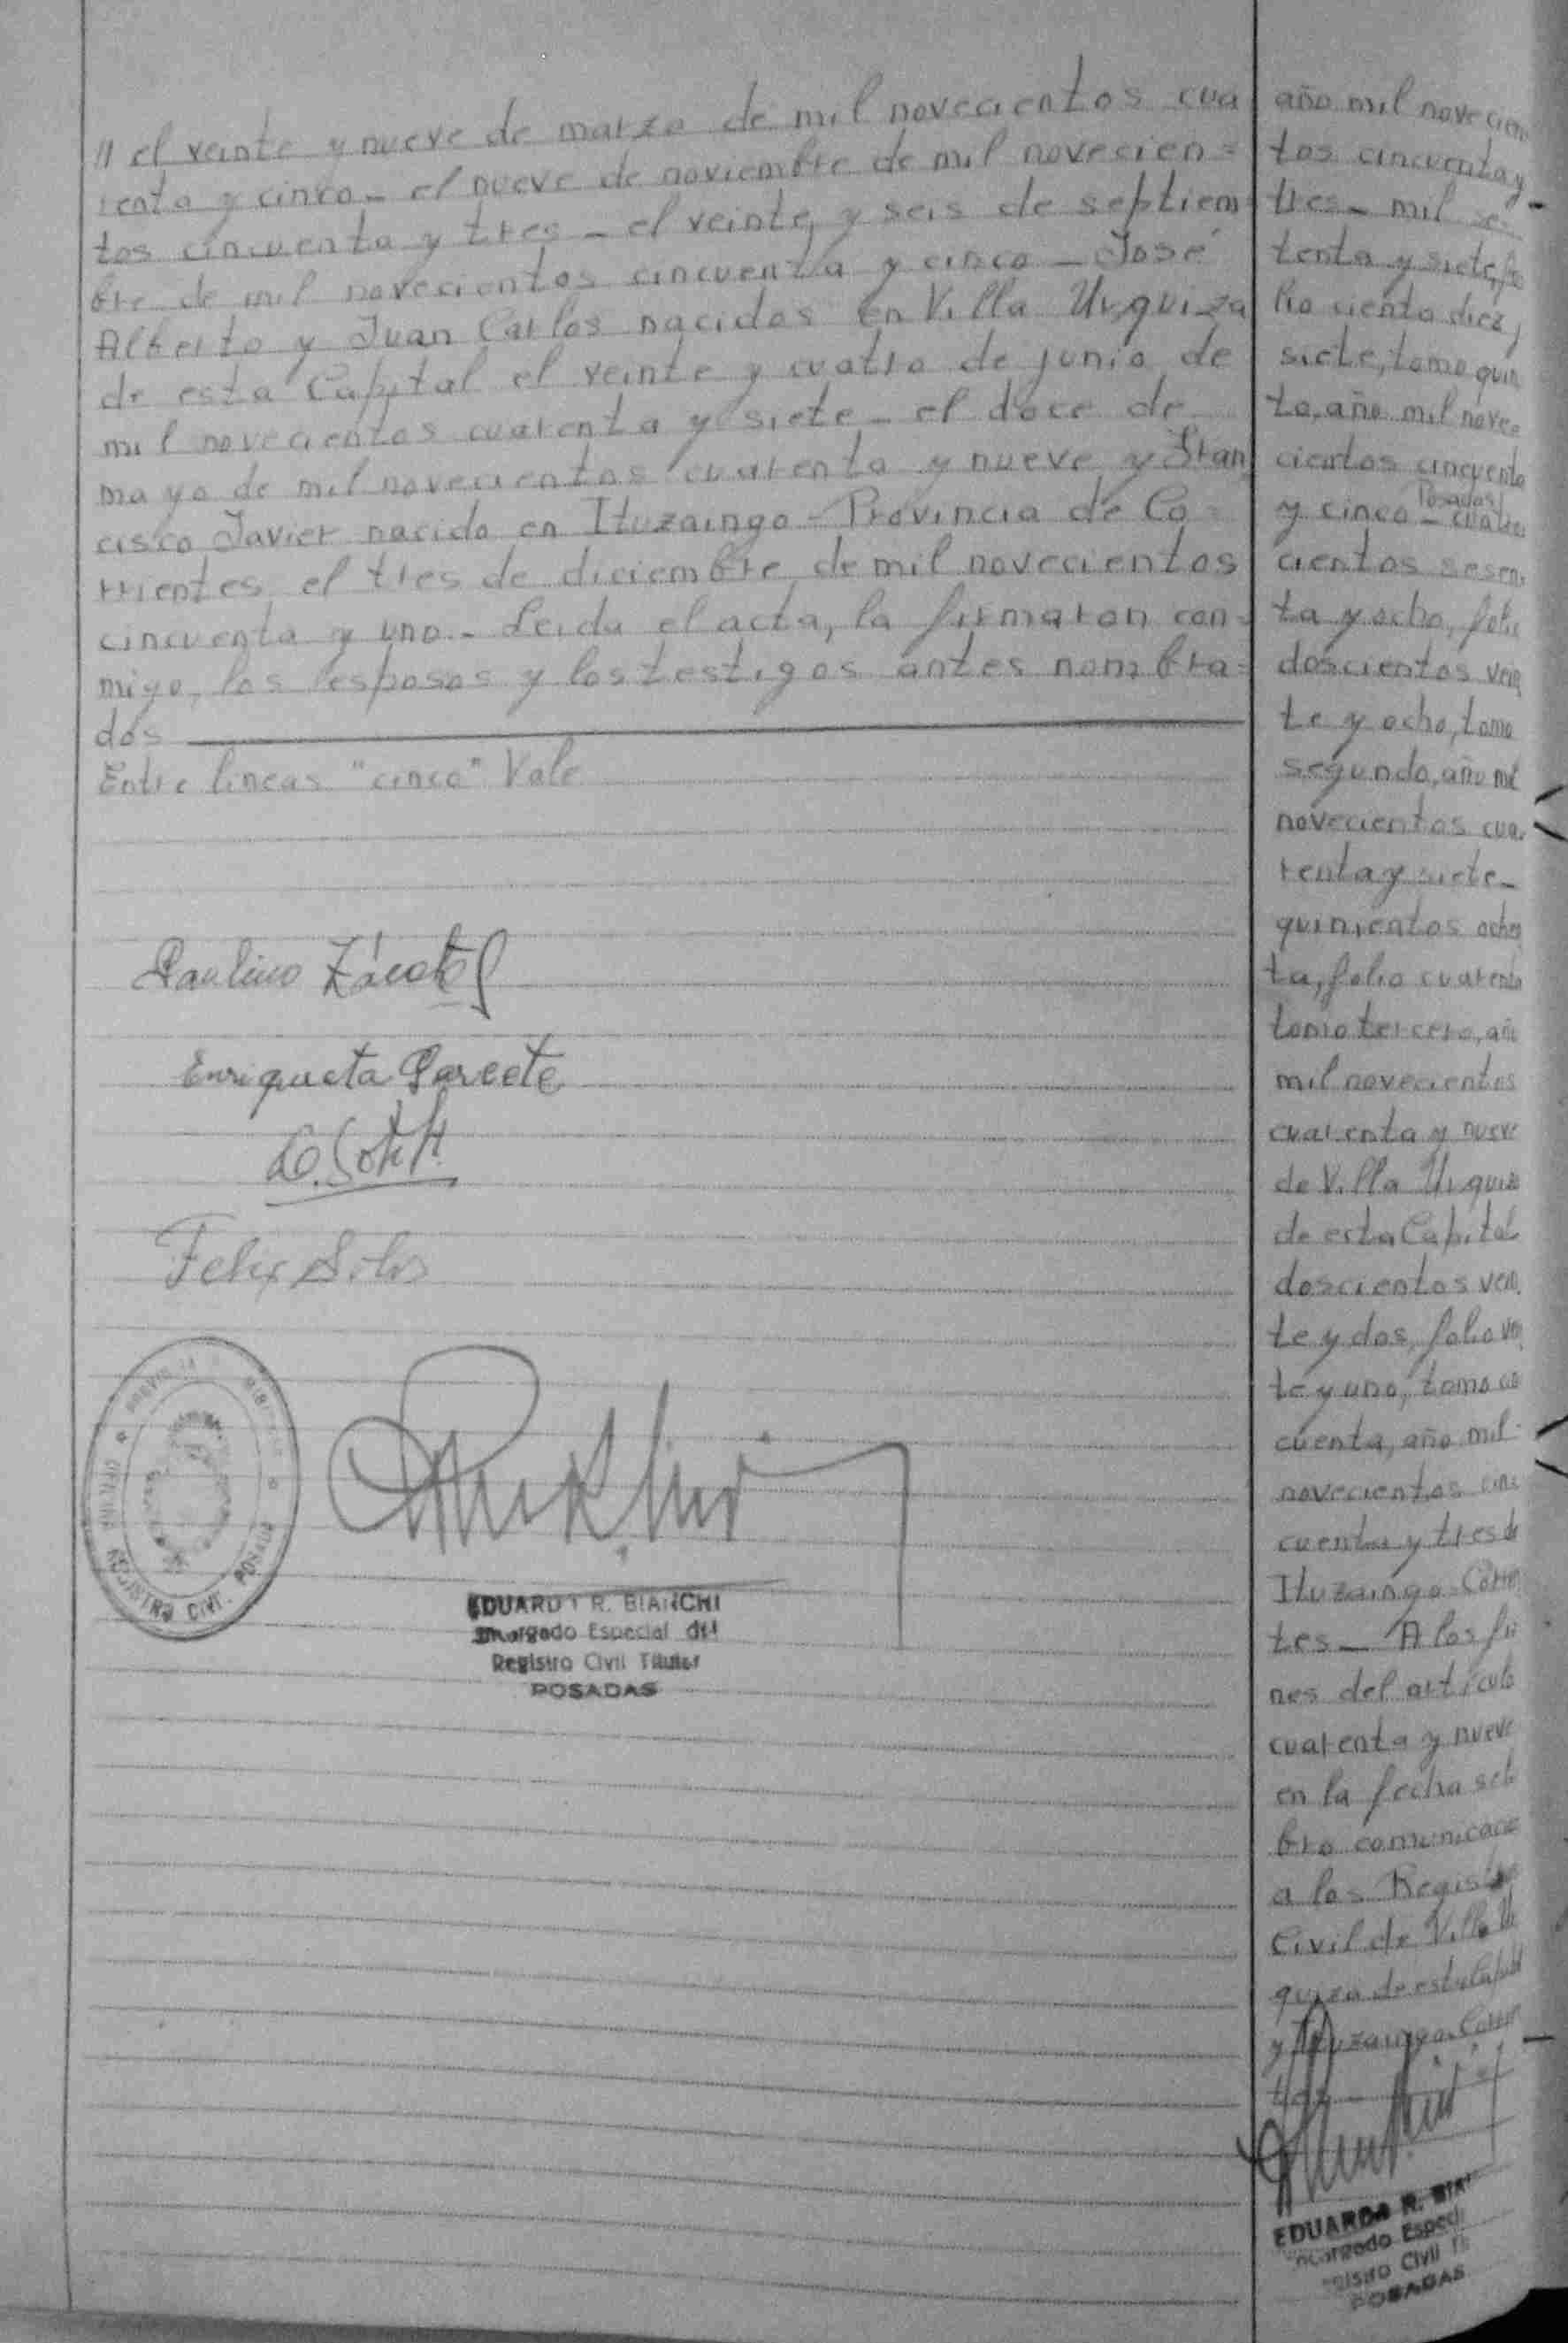 // el veinte y nueve de marzo de mil novecientos cua
renta y cinco – el nueve de noviembre de mil novecien=
tos cincuenta y tres – el veinte y seis de septiem
bre de mil novecientos cincuenta y cinco – José
Alberto y Juan Carlos nacidos en Villa Urquiza
de esta Capital el veinte y cuatro de junio de
mil novecientos cuarenta y siete – el doce de
mayo de mil novecientos cuarenta y nueve y Fran
cisco Javier nacido en Ituzaingo – Provincia de Co=
rrientes el tres de diciembre de mil novecientos
cincuenta y uno. – Leida el acta, la firmaron con=
migo, los esposos y los testigos antes nombra=
dos
Entre lineas "cinco" Vale
Paulino Zárate
Enriqueta Parcete
Felix Silva
OFICINA REGISTRO CIVIL POSADAS
EDUARDO R. BIANCHI
Encargado Especial del
Registro Civil Titular
POSADAS
año mil novecien
tos cincuenta y
tres – mil se
tenta y siete, fo
lio ciento diez y
siete, tomo quin
to, año mil nove
cientos cincuenta
Posadas
y cinco – cuatro
cientos sesen
ta y ocho, folio
doscientos vein
te y ocho, tomo
segundo, año mil
novecientos cua
renta y siete –
quinientos ochen
ta, folio cuarenta
tomo tercero, año
mil novecientos
cuarenta y nueve
de Villa Urquiza
de esta Capital
doscientos vein
te y dos, folio vein
te y uno, tomo cin
cuenta, año mil
novecientos cin
cuenta y tres de
Ituzaingo – Corrien
tes – A los fi
nes del artículo
cuarenta y nueve
en la fecha se li
bro comunicacio
a los Registro
Civil de Villa Ur
quiza de esta Capital
y Ituzaingo Corrien
tes
EDUARDO R. BIA
ncargado Especi
gistro Civil Ti
POSADAS